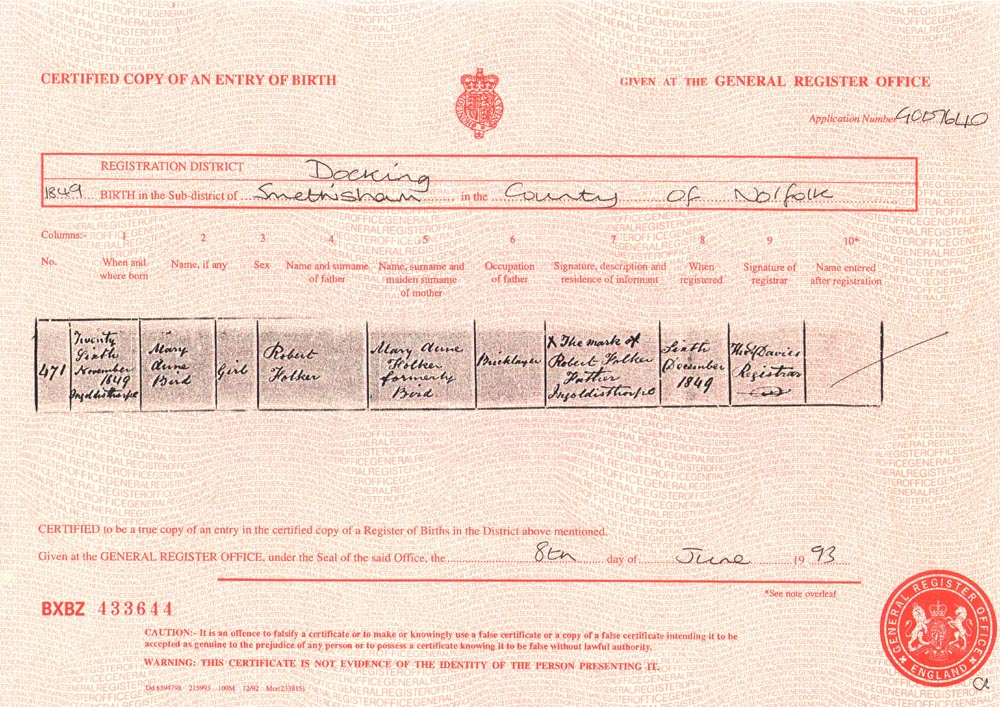 CERTIFIED COPY OF AN ENTRY OF BIRTH
GIVEN AT THE GENERAL REGISTER OFFICE
Application Number
REGISTRATION DISTRICT Docking
1849 BIRTH in the Sub-district of Snettisham in the County of Norfolk
Columns:- 1 2 3 4 5 6 7 8 9 10*
No. When and where born Name, if any Sex Name and surname of father Name, surname and maiden surname of mother Occupation of father Signature, description and residence of informant When registered Signature of registrar Name entered after registration
471
Twenty
Sixth
November
1849
Ingoldisthorpe
Mary
Anne
Bird
Girl
Robert
Holker
Mary Anne
Holker
formerly
Bird
Bricklayer
X The mark of
Robert Holker
Father
Ingoldisthorpe
Sixth
December
1849
Davies
Registrar
CERTIFIED to be a true copy of an entry in the certified copy of a Register of Births in the District above mentioned.
Given at the GENERAL REGISTER OFFICE, under the Seal of the said Office, the 8th day of June 1993
*See note overleaf
BXBZ 433644
CAUTION:- It is an offence to falsify a certificate or to make or knowingly use a false certificate or a copy of a false certificate intending it to be
accepted as genuine to the prejudice of any person or to possess a certificate knowing it to be false without lawful authority.
WARNING: THIS CERTIFICATE IS NOT EVIDENCE OF THE IDENTITY OF THE PERSON PRESENTING IT.
Dd 8394798 215993 100M 12/92 Mcr(233815)
GENERAL REGISTER OFFICE
ENGLAND